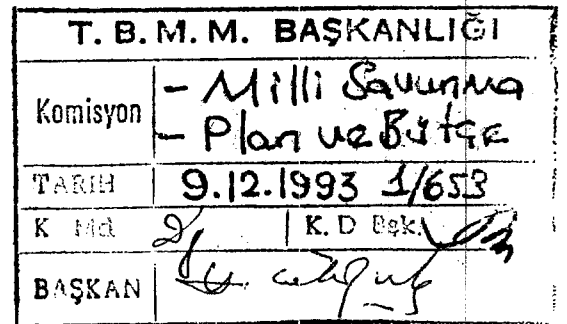 T. B. M. M. BAŞKANLIĞI
Komisyon - Milli Savunma
- Plan ve Bütçe
TARİH 9.12.1993 1/653
K Md. K. D Bşk.
BAŞKAN